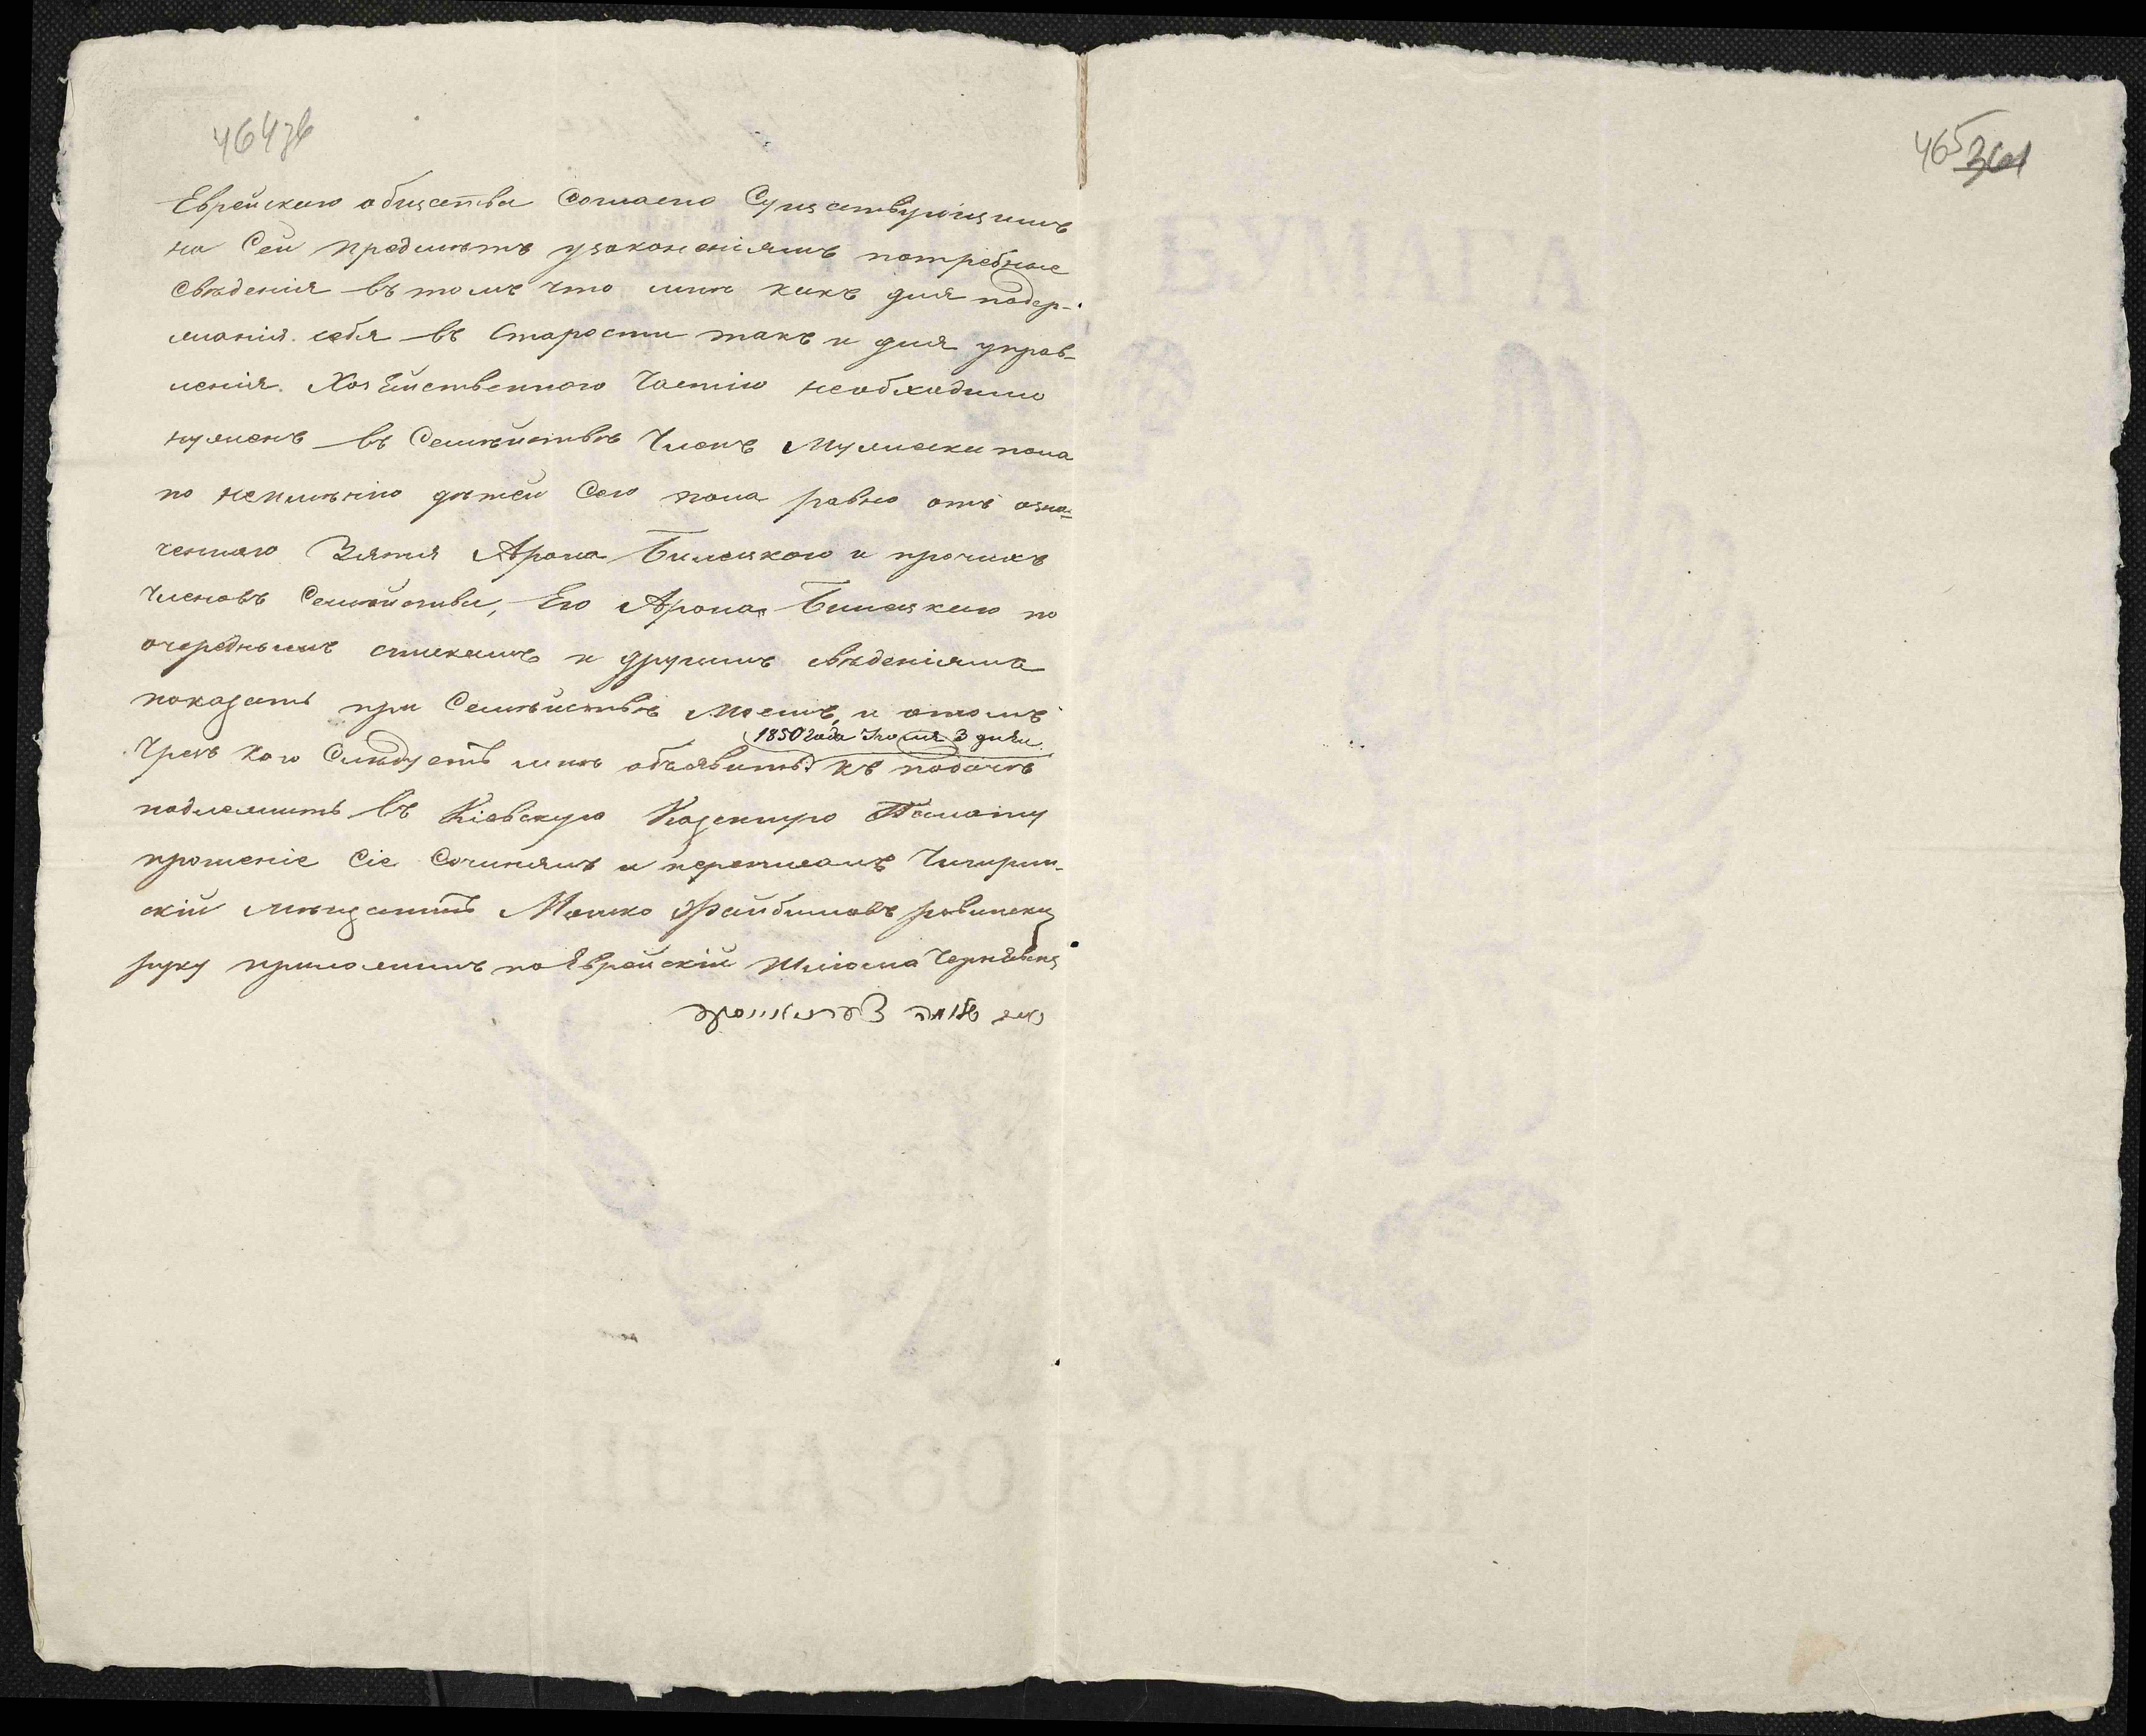 464об
465 361
Еврейскаго общества Согласно Существующимъ
на Сей предмѣтъ узаконеніямъ потребные
Свѣденія въ томъ что мнѣ какъ для подер-
жанія себя въ Старости такъ и для управ-
ленія Хозяйственного Частію необходимо
нуженъ въ Семѣйствѣ Членъ Мужеска пола
по неимѣнію дѣтей Сего пола равно отъ озна-
ченнаго Зятя Арона Билецкого и прочихъ
Членовъ Семѣйства, Его Арона Билецкаго по
очереднымъ спискамъ и другимъ свѣденіямъ
показать при Семѣйствѣ Моемъ, и отомъ
Чрезъ кого Слѣдуетъ мнѣ объявить 1850 года Іюля 3 дня къ подачѣ
подлежитъ въ Кіевскую Казенную Палату
прошеніе Сіе Сочинялъ и переписалъ Чигирин-
скій мѣщанинъ Мошко Файбишовъ
руку приложилъ по Еврейскій Шліома
שלמה